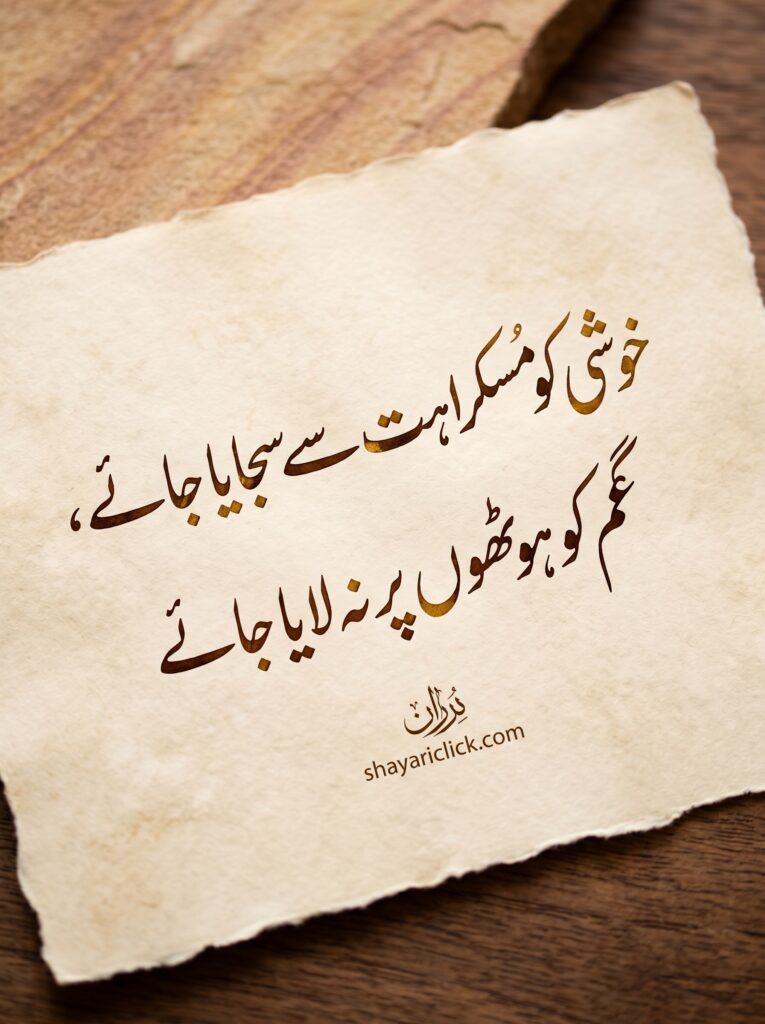 خوشی کو مُسکراہت سے سجایا جائے،
کو ہوٹھوں پر نہ لایا جائے
shayariclick.com